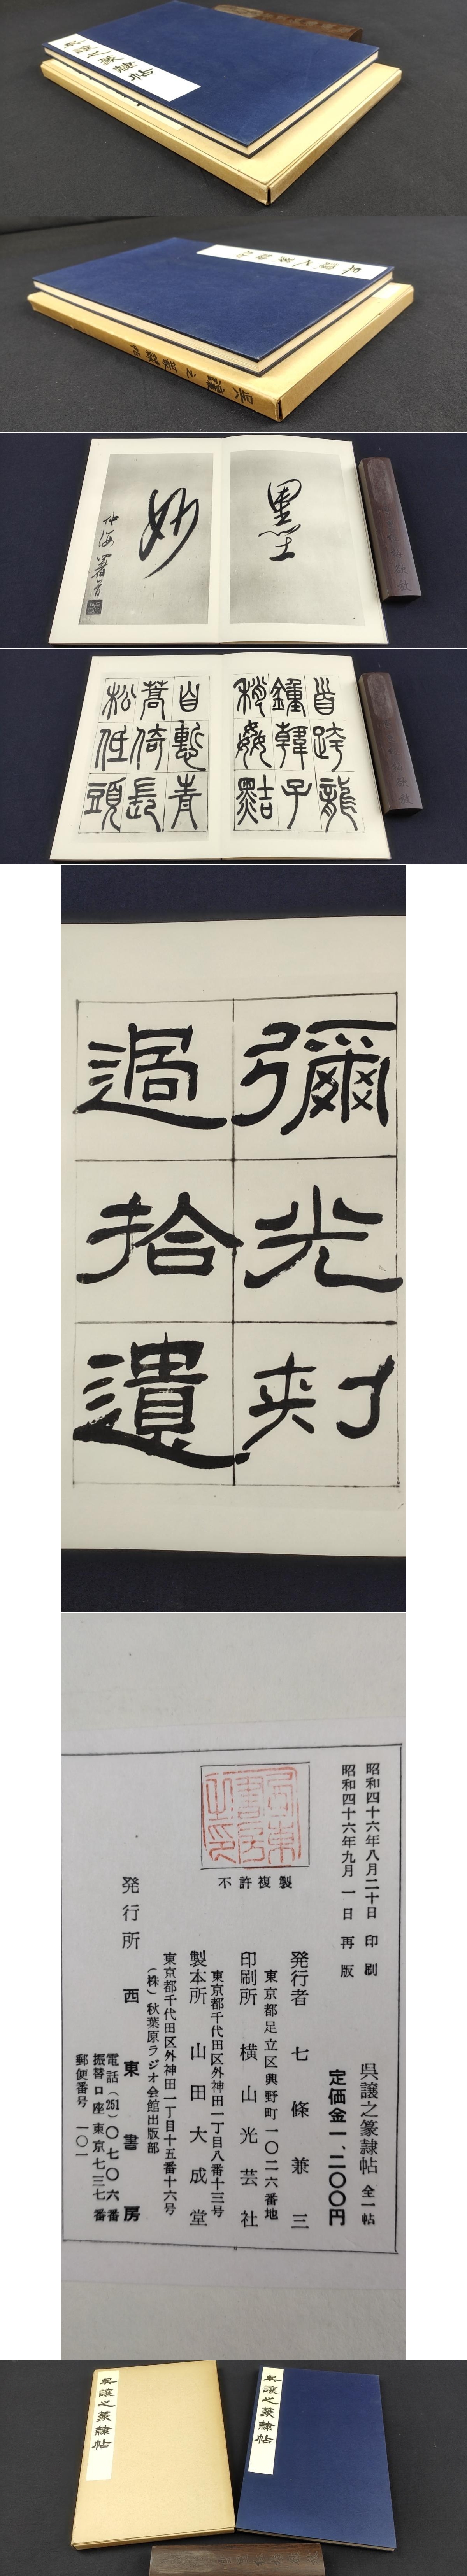 呉譲之篆隷帖
墨
妙
仲海署首
首跨龍
鍾韓子
稍姦黠
自慙青
蒿倚長
松低頭
彌光刻
過拾遺
昭和四十六年八月二十日 印刷
昭和四十六年九月 一日 再版
不許複製
呉譲之篆隷帖 全一帖
定価金一、二〇〇円
発行者 七條兼三
東京都足立区興野町一〇二六番地
印刷所 横山光芸社
東京都千代田区外神田一丁目八番十三号
製本所 山田大成堂
東京都千代田区外神田一丁目十五番十六号
(株)秋葉原ラジオ会館出版部
発行所 西東書房
電話(251)〇七〇六番
振替口座東京七三七番
郵便番号 一〇一
呉譲之篆隷帖
呉譲之篆隷帖